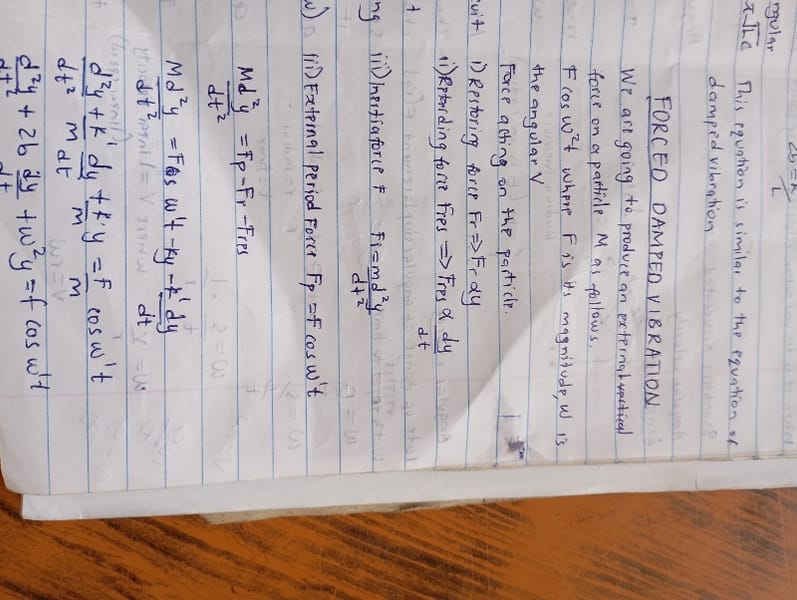 ngular
x√LC
2b = R/L
This equation is similar to the equation of
damped vibration
FORCED DAMPED VIBRATION
We are going to produce an external vertical
force on a particle M as follows.
F cos w²t where F is its magnitude, w is
the angular V
Force acting on the particle.
cuit i) Restoring force Fr => Fr dy
ii) Retarding force Fres => Fres α dy/dt
ng iii) Inertia force F Fi = md²y/dt²
w) (iii) External period Force Fp = F cos w't
Md²y/dt² = Fp - Fr - Fres
Md²y/dt² = Fcos w't - ky - k' dy/dt
d²y/dt² + k'/m dy/dt + k'/m y = F/m cos w't
d²y/dt² + 2b dy/dt + w²y = f cos w't